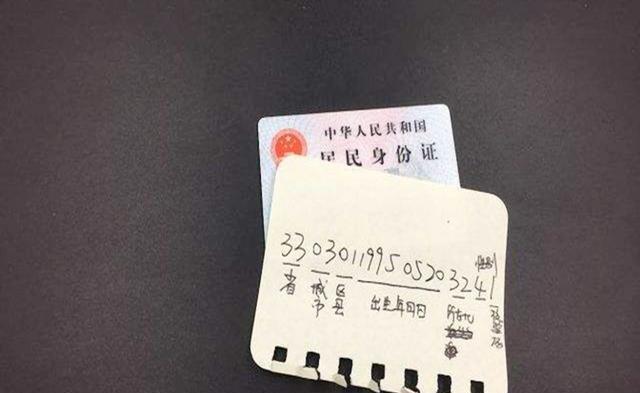 中华人民共和国
居民身份证
性别
330301199505203241
省 城市 区县 出生年月日 所在地